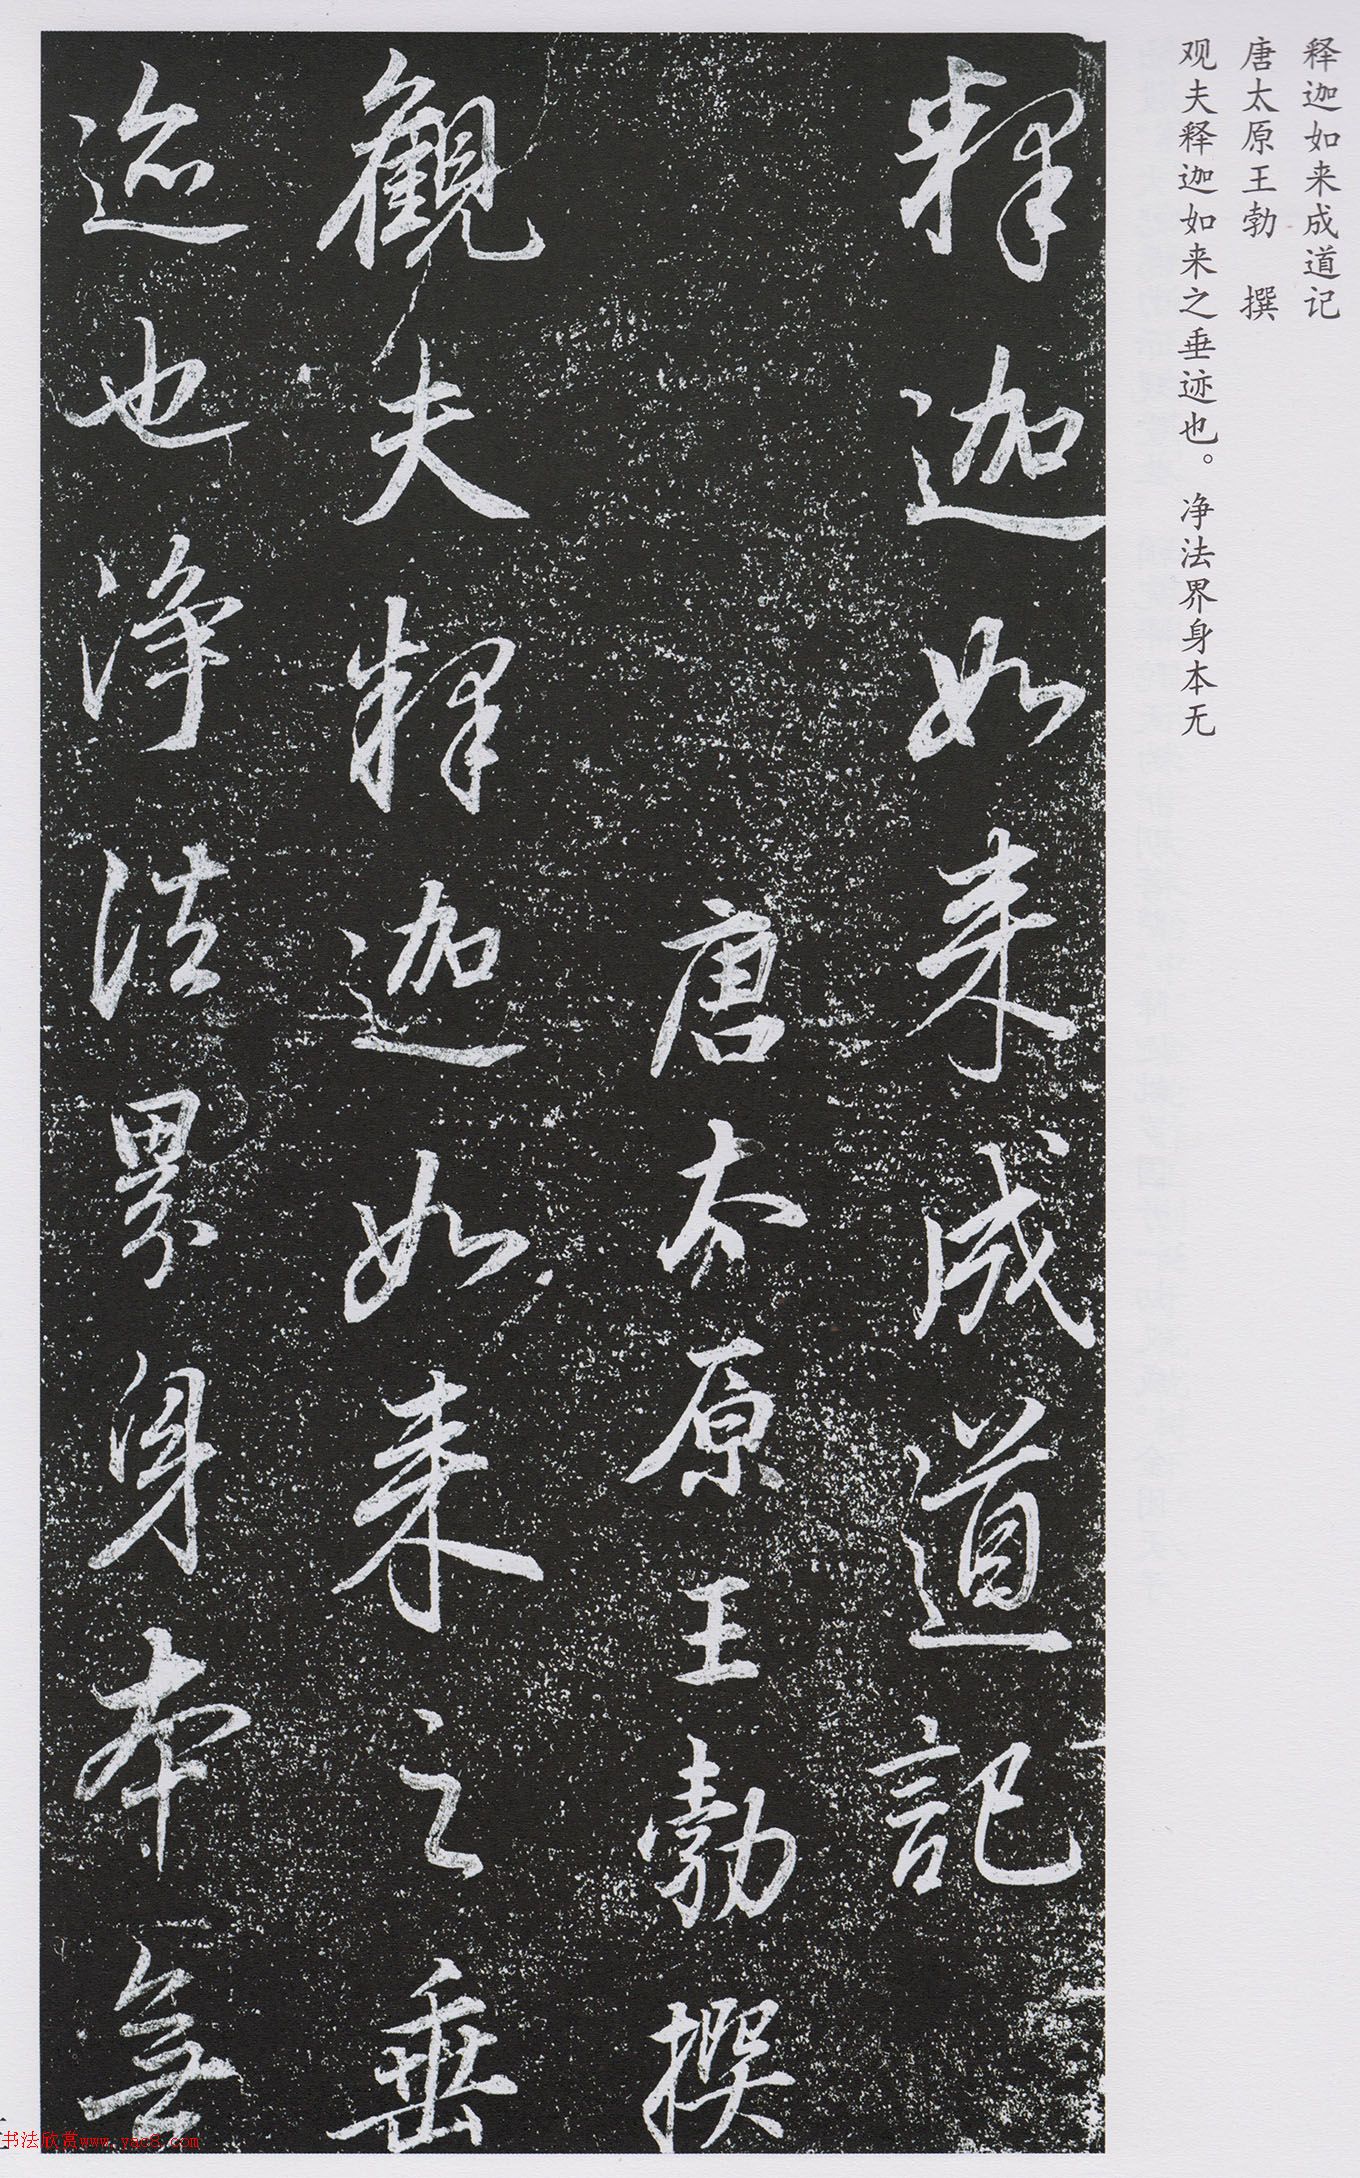 释迦如来成道记
唐太原王勃 撰
观夫释迦如来之垂迹也。净法界身本无
釋迦如来成道記
唐太原王勃撰
觀夫釋迦如来之垂
迹也淨法界身本無
书法欣赏www.yac8.com